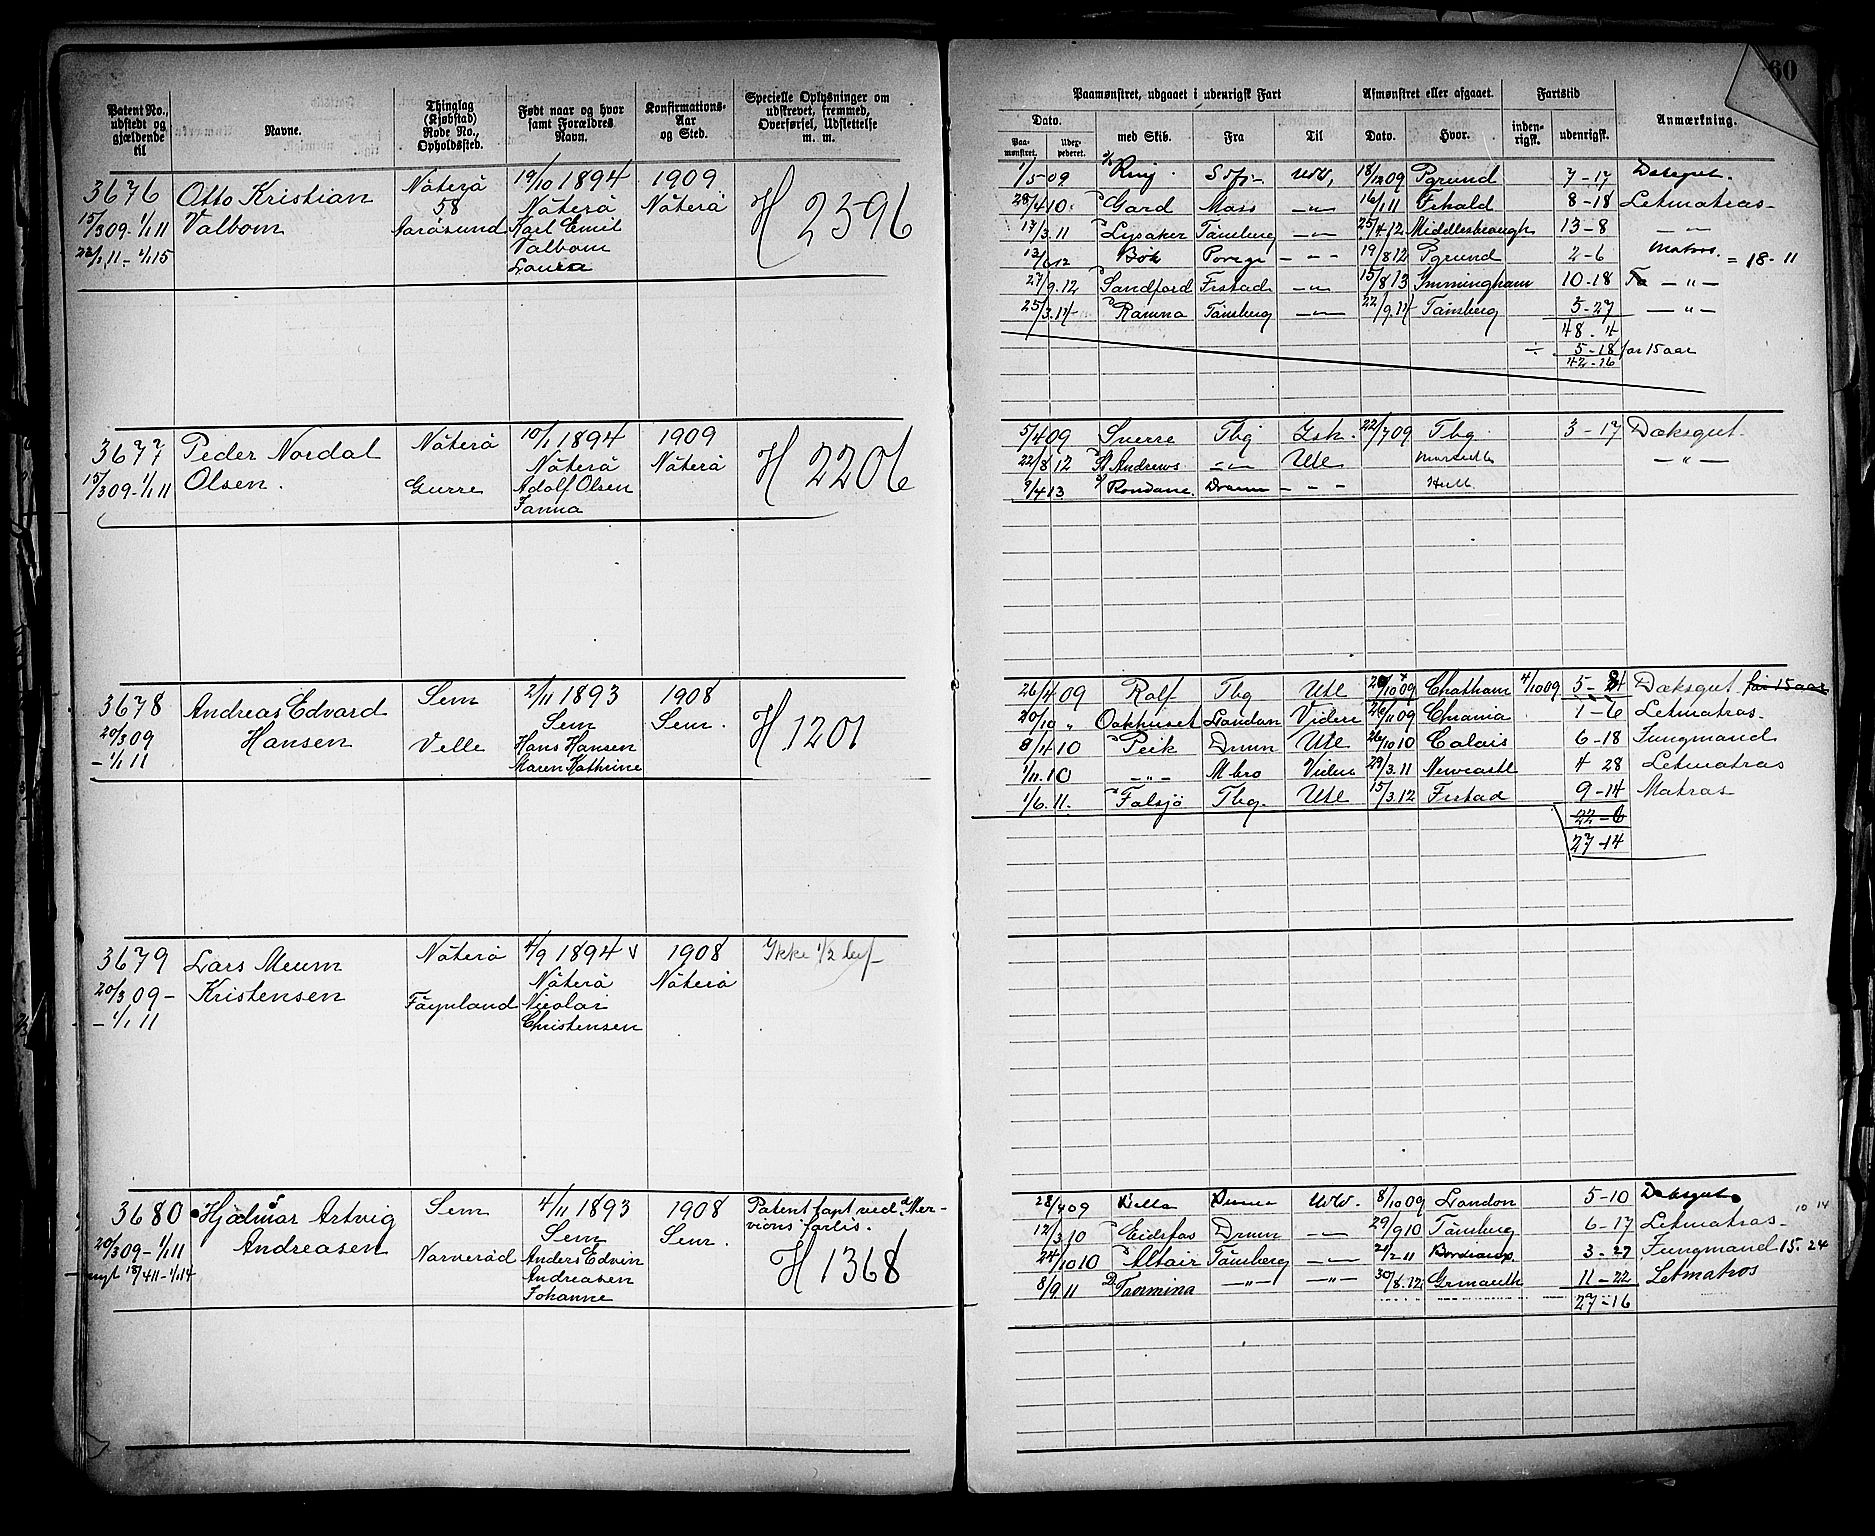 60
Patent No., udstedt og gjældende til
Navne.
Thinglag (Kjøbstad) Rode No., Opholdssted.
Født naar og hvor samt Forældres Navn.
Konfirmations-Aar og Sted.
Specielle Oplysninger om udskrevet, fremmed, Overførsel, Udslettelse m. m.
Paamønstret, udgaaet i udenrigsk Fart
Dato.
Paamønstret.
Uderpederet.
med Skib.
Fra
Til
Afmønstret eller afgaaet.
Dato.
Hvor.
Fartstid
indenrigsk.
udenrigsk.
Anmærkning.
3676 Otto Kristian Nöterö 19/10 1894 1909 H 2596
15/3 09-1/1 11 Valbom 58 Nöterö Nöterö
22/1 11-1/1 15 Karl Emil
Valbom
Laura
1/5 09 Ring 18/12 09 Pgrund 7-17
28/4 10 Gard Moss -"- 16/1 11 Frhald 8-18 Letmatros
17/3 11 Lysaker Tönsberg -"- 25/4 12 Middlesbrough 13-8 -"-
13/6 12 Bök Porsgr -"- 19/8 12 Pgrund 2-6 Matros. = 18-11
27/9 12 Sandfjord Frstad -"- 15/8 13 Immingham 10-18 -"-
25/3 14 Ramna Tönsberg -"- 22/9 14 Tönsberg 5-27 -"-
48-4
÷ 5-18 før 15 aar
42-16
3677 Peder Nordal Nöterö 10/1 1894 1909 H 2206
15/3 09-1/1 11 Olsen. Nöterö Nöterö
Adolf Olsen
Fanna
5/4 09 Sverre Tbg 22/7 09 Tbg. 3-17 Dæksgut
22/8 12 St Andrews -"- Utl -"-
9/4 13 Rondane. Dramm -"- Hull
3678 Andreas Edvard Sem 2/11 1893 1908 H 1201
20/3 09 Hansen Velle Sem Sem.
-1/1 11 Hans Hansen
Maren Kathrine
26/4 09 Rolf Tbg Utl Chatham 4/10 09 Dæksgut før 15 aar
20/10 " Oakhurst London Videre 26/11 09 Chrania 1-6 Letmatros
8/4 10 Peik Drmn Utl 26/10 10 Calais 6-18 Jungmand
1/11 10 -"- Mbro Videre 29/3 11 Newcastl 4 28 Letmatros
1/6 11. Falsjö Tbg. Utl 15/3 12 Frstad 9-14 Matros
22-6
27-14
3679 Lars Meum Nöterö 4/9 1894 1908
20/3 09- Kristensen Föynland Nöterö Nöterö
-1/1 11 Nicolai
Christensen
3680 Hjalmar Artvig Sem 4/11 1893 1908 Patent tapt ved
20/3 09-1/1 11 Andreasen Narveröd Sem Sem. vions forlis.
nyt 18/4 11-1/1 14 Anders Edvin H 1368
Andreasen
Johanne
28/4 09 8/10 09 London 5-10 Dæksgut
12/3 10 Eidsfos Drmn -"- 29/9 10 Tönsberg 6-17 Letmatros 10 14
24/10 10 Altair Tönsberg -"- 21/2 11 Bordeaux 3-27 Jungmand 15.24
8/9 11 Taormina -"- -"- 30/8 12 Grmouth 11-22 Letmatros
27-16